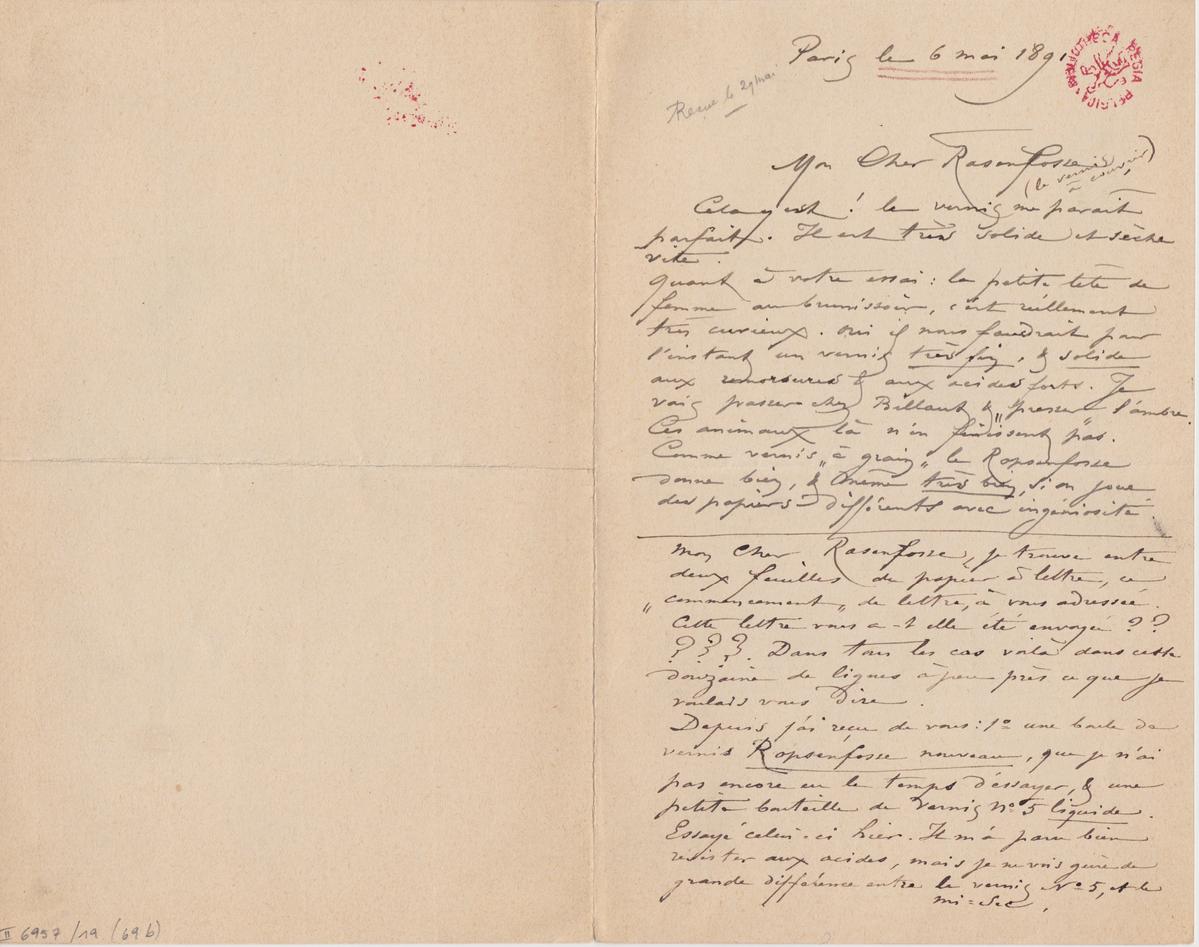 Paris le 6 mai 1891
Reçue le 29 mai
Mon Cher Rassenfosse
(le vernis
à couvrir)
Cela y est ! le vernis me parait
parfait. Il est très solide et sèche
vite.
Quant à votre essai : la petite tête de
femme au brunissoir, c'est réellement
très curieux. Oui il nous faudrait pour
l'instant un vernis très fin, & solide
aux remorsures & aux acides forts. Je
vais passer chez Billault & "presser" l'ambre.
Ces animaux là n'en finissent pas.
Comme vernis "à grain" le Ropsenfosse
donne bien, & même très bien, si on joue
des papiers différents avec ingéniosité.
Mon Cher Rassenfosse, je trouve entre
deux feuilles de papier à lettre, ce
"commencement" de lettre, à vous adressée.
Cette lettre vous a-t elle été envoyée ? ?
? ? ?. Dans tous les cas voilà dans cette
douzaine de lignes à peu près ce que je
voulais vous dire.
Depuis j'ai reçu de vous : 1º une boule de
vernis Ropsenfosse nouveau, que je n'ai
pas encore eu le temps d'essayer, & une
petite bouteille de vernis Nº 5 liquide.
Essayé celui-ci hier. Il m'a paru bien
résister aux acides, mais je ne vois guère de
grande différence entre le vernis Nº 5, et le
mi=sec,
II 6957 /19 (69 b)